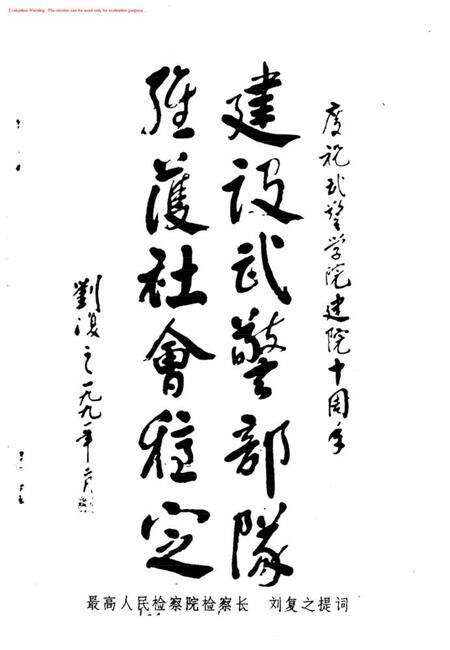 Evaluation Warning : The version can be used only for evaluation purpose...
庆祝武警学院建院十周年
建设武警部隊
維護社會穩定
劉復之一九九一年二月
最高人民检察院检察长　刘复之提词